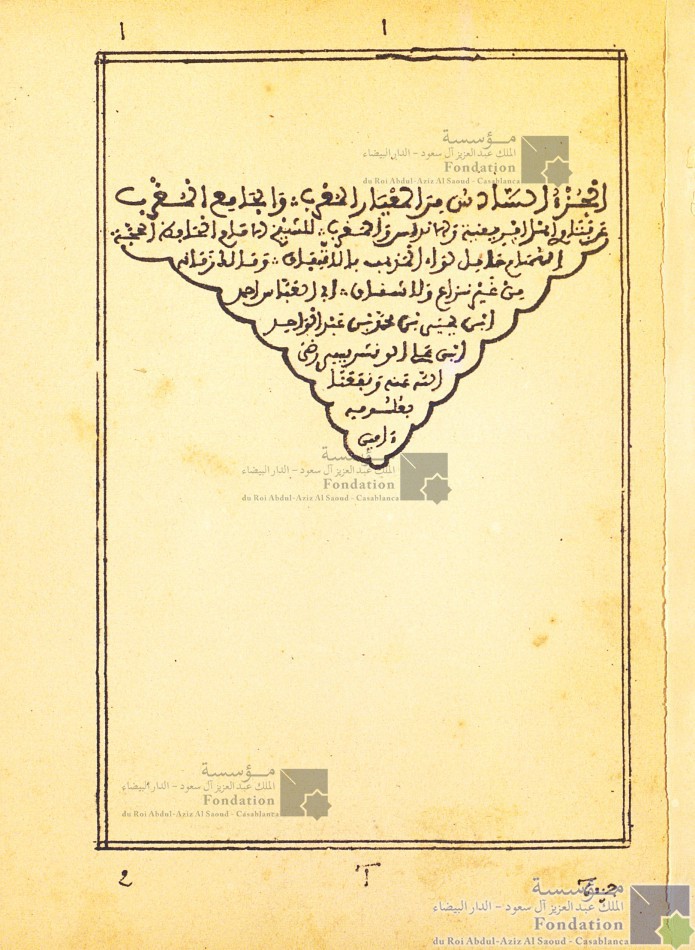 ا ا
الجزء السادس من المعيار المغرب والجامع المغرب
عن فتاوى اهل افريقية والاندلس والمغرب للشيخ الامام الحافظ الحجة
الهمام حامل لواء المذهب بالاتفاق وقالة زمانه
من غير نزاع ولا شقاق ابى العباس احمد
ابن يحيى بن محمد بن عبد الواحد
ابن على الونشريسي رضي
الله عنه ونفعنا
بعلومه
ءامين
مؤسسة
الملك عبد العزيز آل سعود - الدار البيضاء
Fondation
du Roi Abdul-Aziz Al Saoud - Casablanca
مؤسسة
الملك عبد العزيز آل سعود - الدار البيضاء
Fondation
du Roi Abdul-Aziz Al Saoud - Casablanca
مؤسسة
الملك عبد العزيز آل سعود - الدار البيضاء
Fondation
du Roi Abdul-Aziz Al Saoud - Casablanca
مؤسسة
الملك عبد العزيز آل سعود - الدار البيضاء
Fondation
du Roi Abdul-Aziz Al Saoud - Casablanca